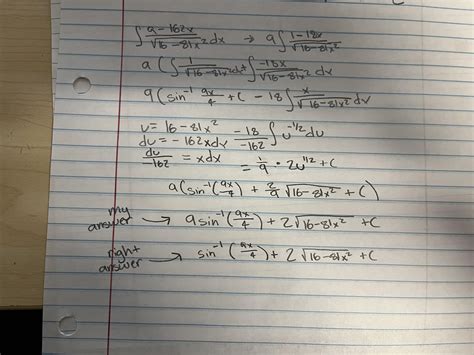 ∫ 9-162x/√16-81x² dx → 9∫ 1-18x/√16-81x²
9(∫ 1/√16-81x² dx + ∫ -18x/√16-81x² dx
9(sin⁻¹ 9x/4 + C - 18∫ x/√16-81x² dx
u = 16-81x² -18/-162 ∫ u^-1/2 du
du = -162xdx
du/-162 = xdx = 1/9 · 2u^1/2 + C
9(sin⁻¹(9x/4) + 2/9 √16-81x² + C)
my answer → 9sin⁻¹(9x/4) + 2√16-81x² + C
right answer → sin⁻¹(9x/4) + 2√16-81x² + C